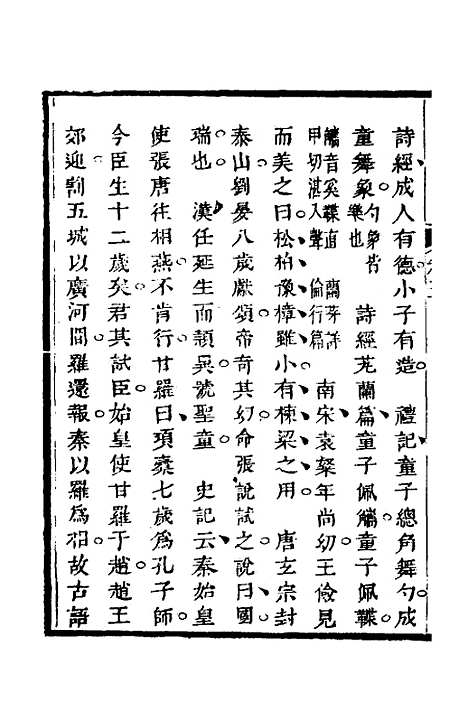 詩經成人有德小子有造　禮記童子總角舞勺成
童舞象勺象皆樂也　詩經芄蘭篇童子佩觿童子佩韘
觿音奚韘直甲切湛入聲　蘭芽詳倫行篇　南宋袁粲年尚幼王儉見
而美之曰松柏豫樟雖小有棟梁之用　唐玄宗封
泰山劉晏八歲獻頌帝奇其幻命張說試之說曰國
瑞也　漢任延生而穎異號聖童　史記云秦始皇
使張唐往相燕不肯行甘羅曰項橐七歲為孔子師
今臣生十二歲矣君其試臣始皇使甘羅于趙趙王
郊迎割五城以廣河間羅還報秦以羅為相故古語